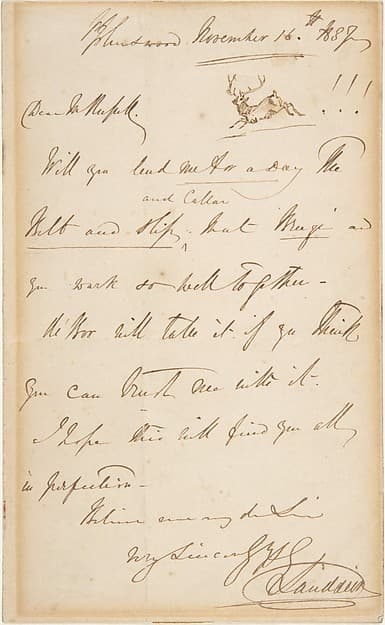 November 16.th
!!!
Dear Mr Russell.
Will you lend me for a day The
and Collar
Belt and slip, that and
you work so well together -
The Boy will take it if you Think
you can trust me with it.
I hope this will find you all
in perfection -
Believe me my dr Sir
very Sincerely Ys
E Landseer